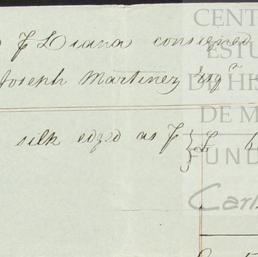 Diana consigned
Joseph Martinez Esqr
silk edged as
CENT
ESTU
DE HIS
DE M
FUND
Carl